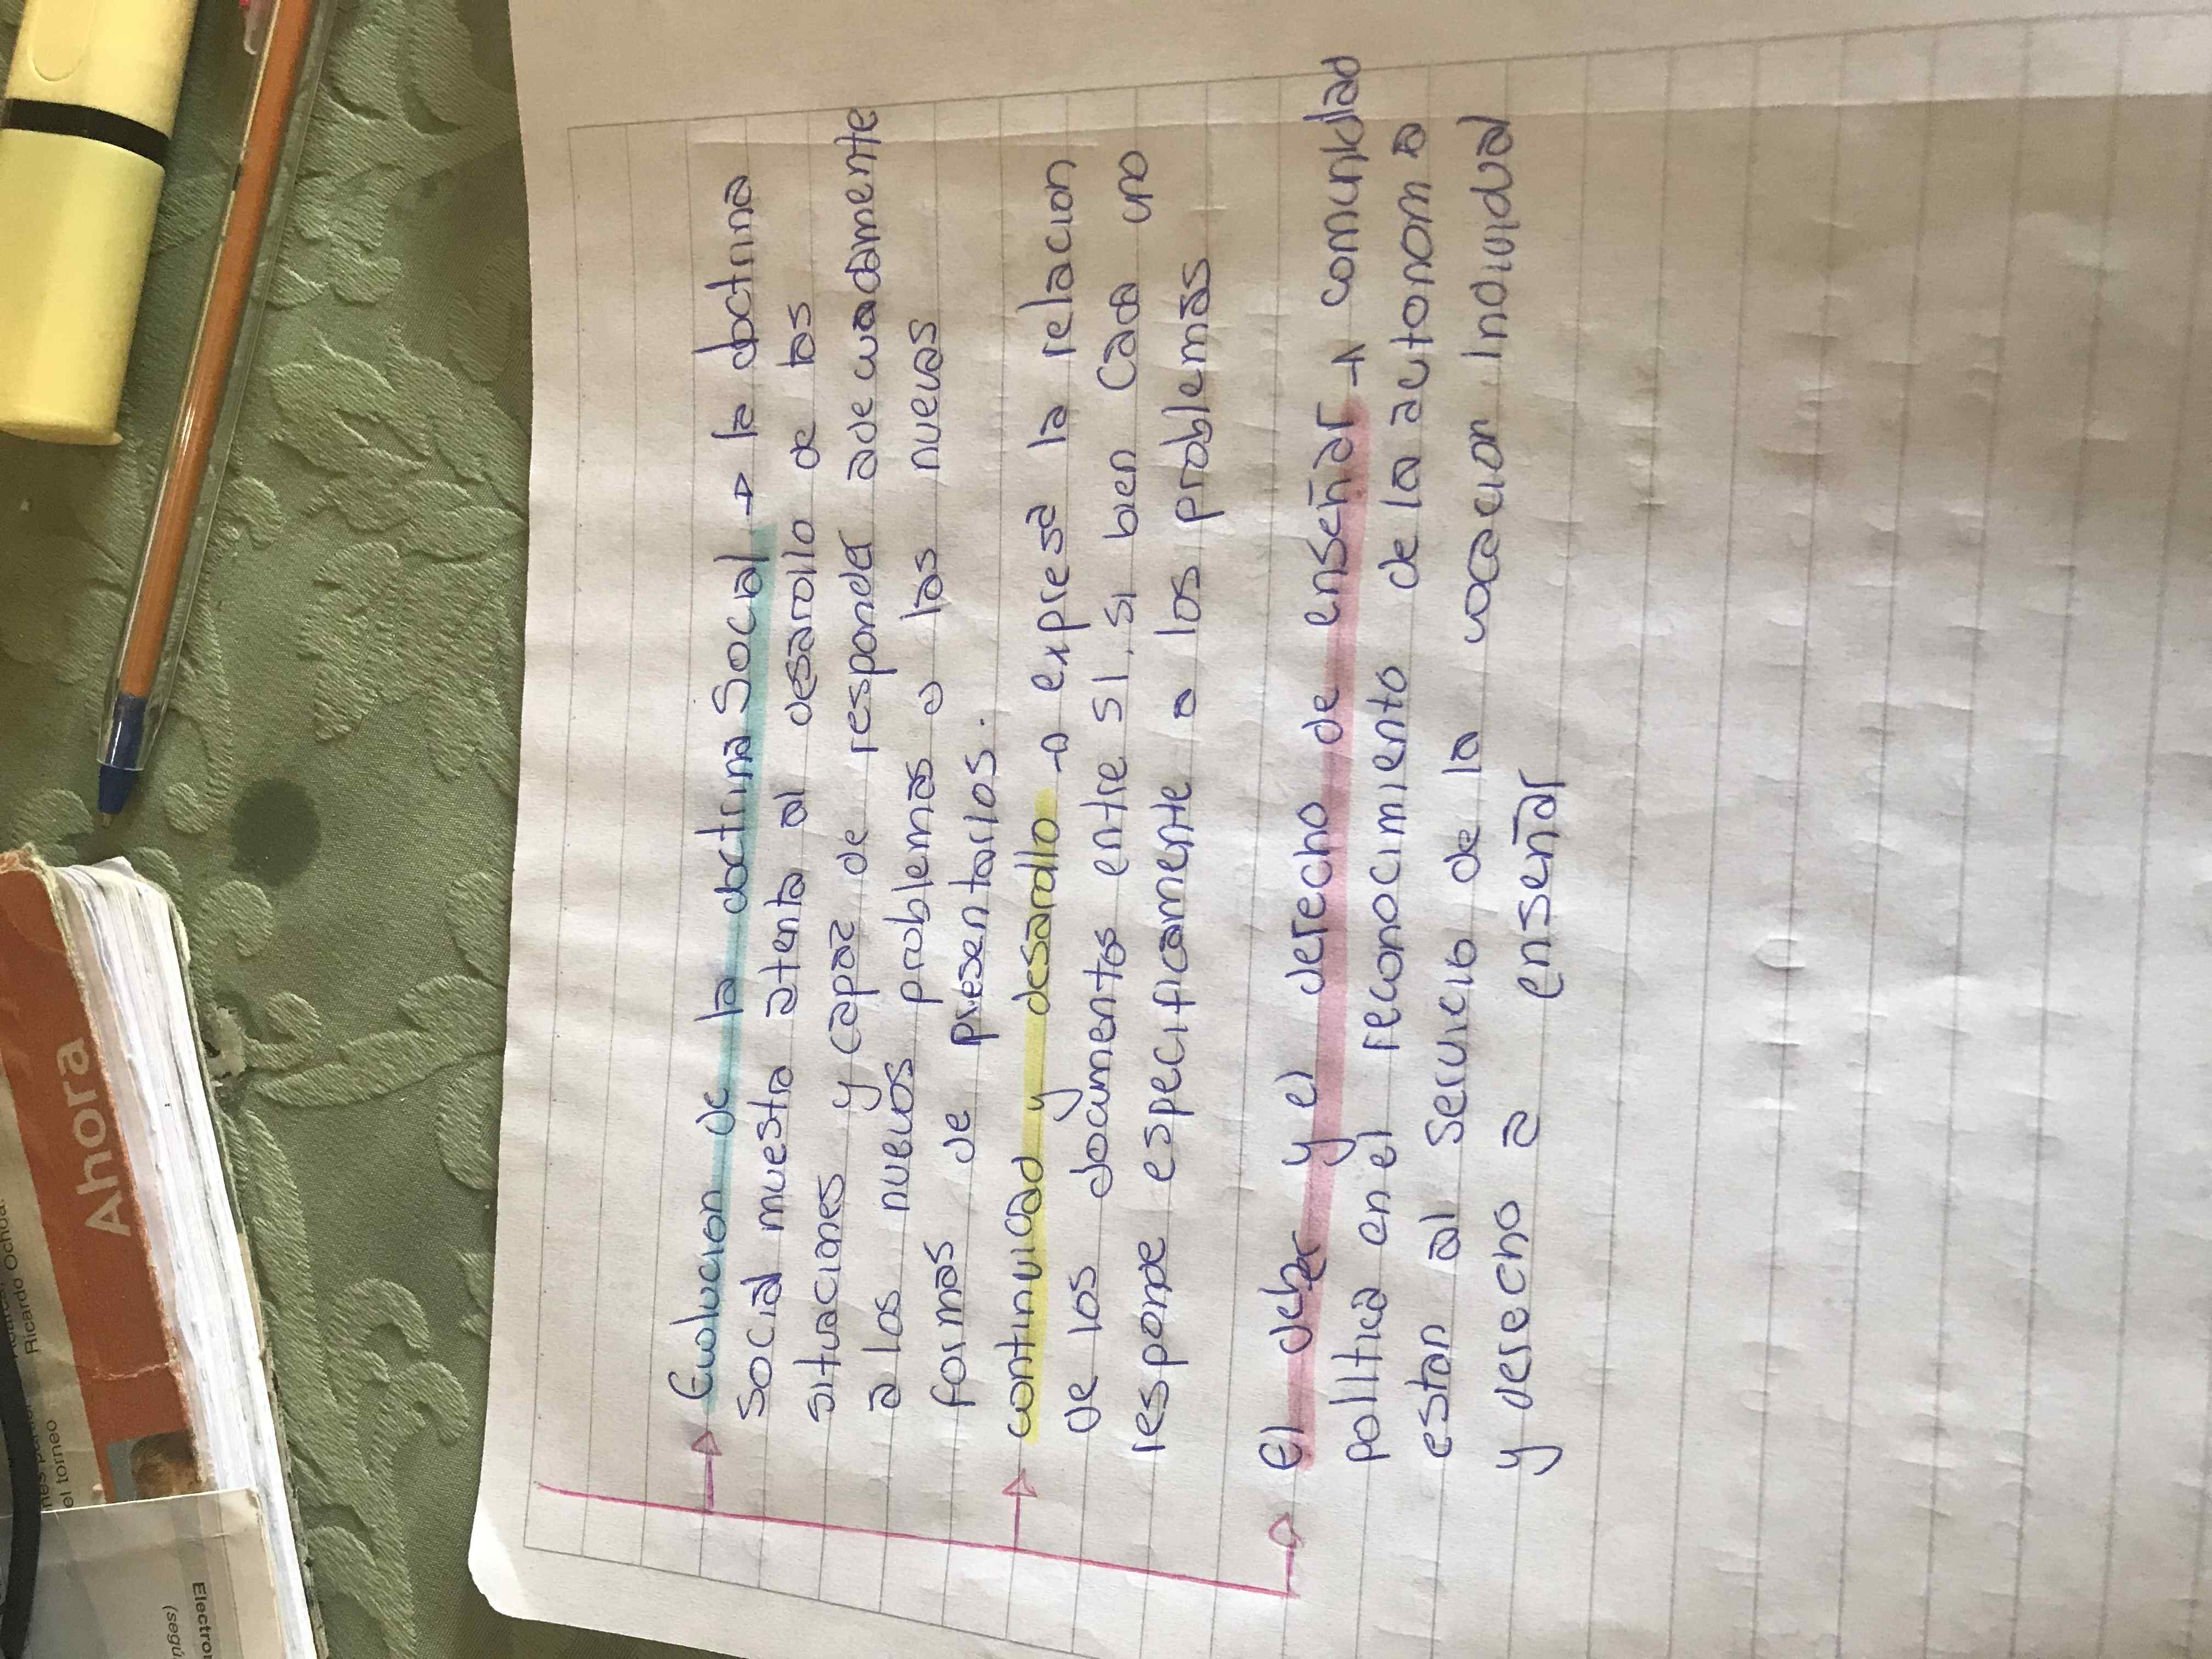 Evolucion de la doctrina Social → la doctrina
social muestra atenta al desarollo de las
situaciones y capaz de responder adecuadamente
a los nuevos problemas o las nuevas
formas de presentarlos.
continuidad y desarollo → expresa la relacion
de los documentos entre si, si bien Cada uno
responde especificamente a los problemas
El deber y el derecho de enseñar → comunidad
politica en el reconocimiento de la autonomia
estan al servicio de la vocacion individual
y derecho a enseñar
Ahora
Ricardo Ochoa
el torneo
Electron
(segú